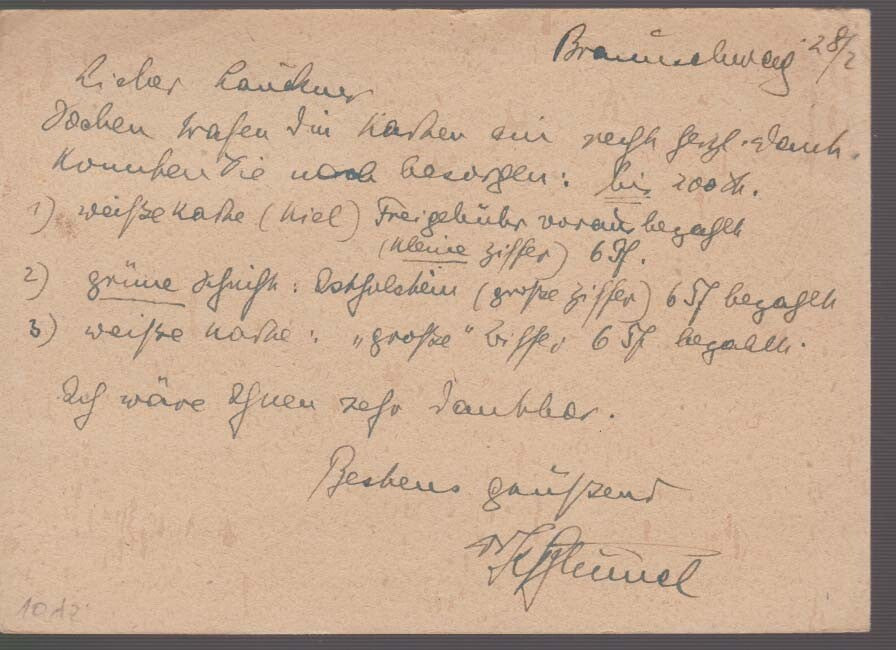 Braunschweig 28/2
Lieber Lauckner
Soeben trafen die Karten ein recht herzl. Dank.
Könnten Sie noch besorgen: bis 200 St.
1) weiße Karte (Kiel) Freigebühr voraus bezahlt
(kleine Ziffer) 6 Pf.
2) grüne Schrift: Ostholstein (große Ziffer) 6 Pf bezahlt
3) weiße Karte: „große“ Ziffer 6 Pf bezahlt.
Ich wäre Ihnen sehr dankbar.
Bestens grüßend
Dr
1012